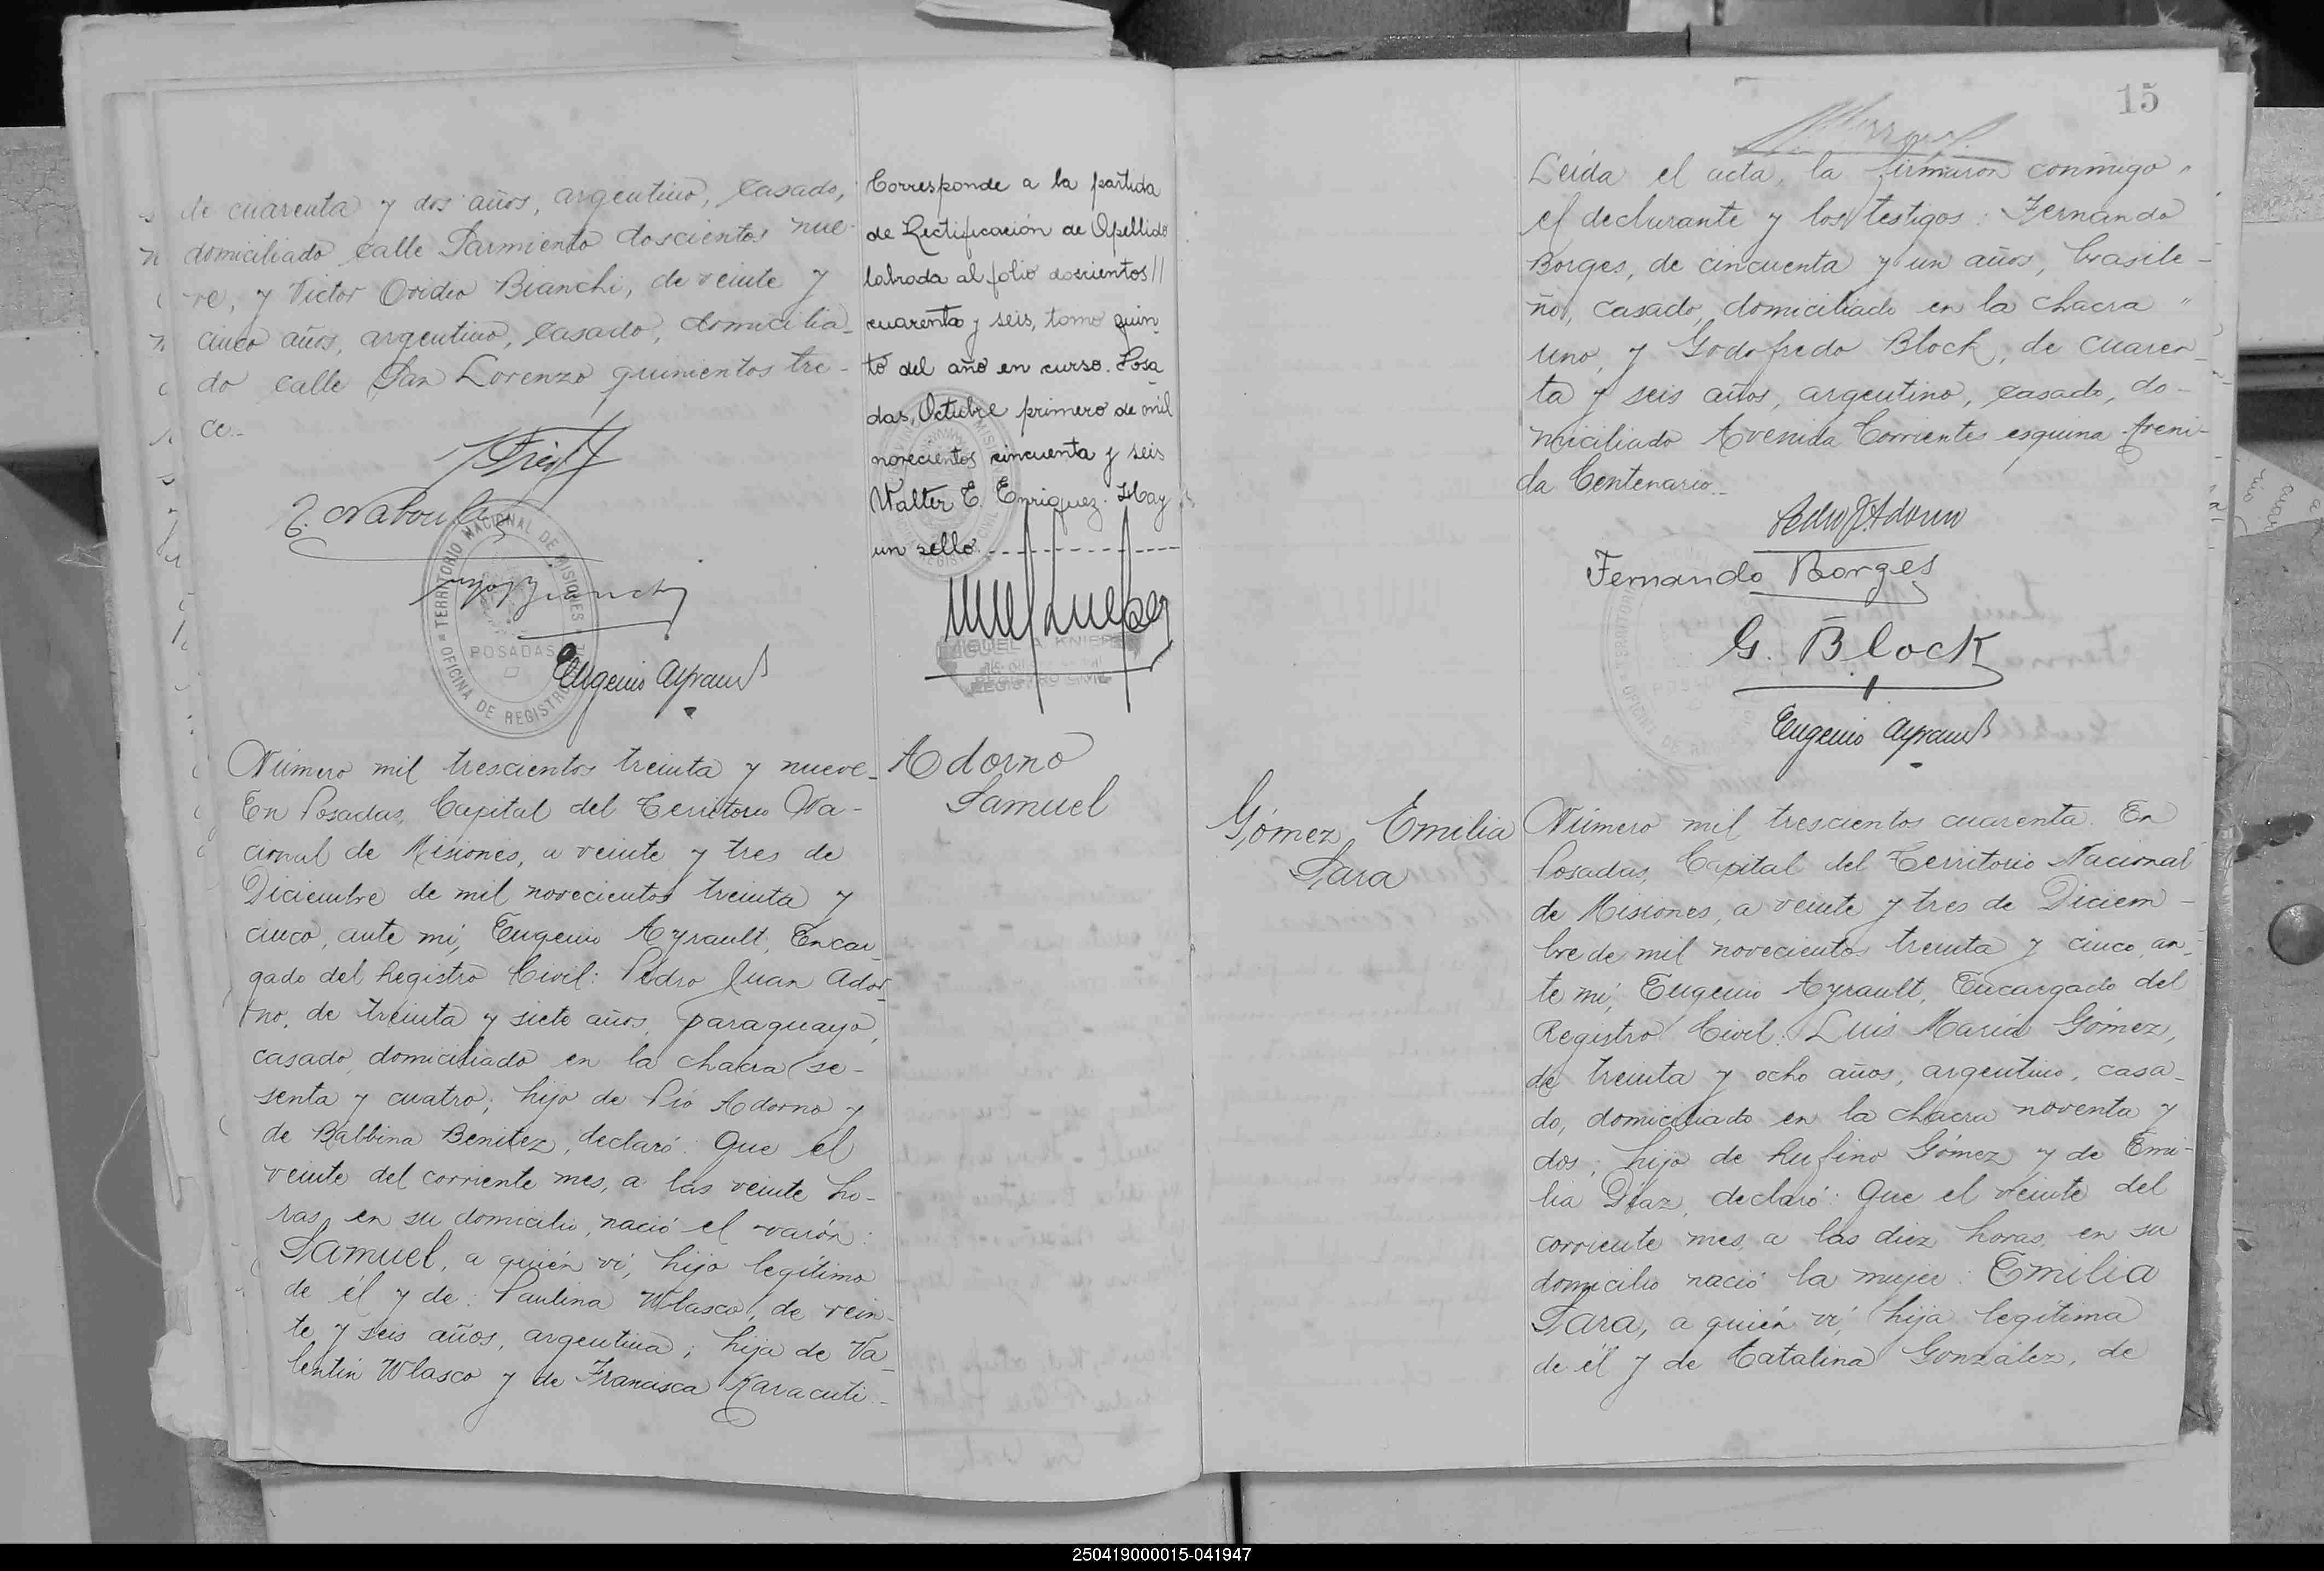 de cuarenta y dos años, argentino, casado,
domiciliado calle Sarmiento doscientos nue-
ve, y Victor Ovidio Bianchi, de veinte y
cinco años, argentino, casado, domicilia-
do calle San Lorenzo quinientos tre-
ce.-
TERRITORIO NACIONAL DE MISIONES
POSADAS
OFICINA DE REGISTRO
Eugenio Ayrault
Corresponde a la partida
de Rectificación de Apellido
labrada al folio doscientos //
cuarenta y seis, tomo quin
to del año en curso. Posa
das, Octubre primero de mil
novecientos cincuenta y seis
Walter E. Enriquez. Hay
un sello.- - - - - - - - - - -
MIGUEL A. KNIER
REGISTRO CIVIL
Número mil trescientos treinta y nueve-
En Posadas, Capital del Territorio Na-
cional de Misiones, a veinte y tres de
Diciembre de mil novecientos treinta y
cinco, ante mí, Eugenio Ayrault, Encar-
gado del Registro Civil: Pedro Juan Ador-
no, de treinta y siete años, paraguayo,
casado, domiciliado en la chacra se-
senta y cuatro; hijo de Pío Adorno y
de Balbina Benitez, declaró: Que el
veinte del corriente mes, a las veinte ho-
ras, en su domicilio, nació el varón:
Samuel, a quién ví, hijo legítimo
de él y de: Paulina Wlasco, de vein-
te y seis años, argentina; hija de Va-
lentín Wlasco y de Francisca Karacuti.-
Adorno
Samuel
15
Leída el acta, la firmaron conmigo,
el declarante y los testigos: Fernando
Borges, de cincuenta y un años, brasile-
ño, casado, domiciliado en la chacra "
uno, y Godofredo Block, de cuaren-
ta y seis años, argentino, casado, do-
miciliado Avenida Corrientes esquina Aveni-
da Centenario.-
Pedro J. Adorno
Fernando Borges
G. Block
Eugenio Ayrault
Gómez, Emilia
Sara
Número mil trescientos cuarenta. En
Posadas, Capital del Territorio Nacional
de Misiones, a veinte y tres de Diciem-
bre de mil novecientos treinta y cinco, an-
te mí, Eugenio Ayrault, Encargado del
Registro Civil: Luis María Gómez,
de treinta y ocho años, argentino, casa-
do, domiciliado en la chacra noventa y
dos; hijo de Rufino Gómez y de Emi-
lia Díaz, declaró: Que el veinte del
corriente mes, a las diez horas, en su
domicilio nació la mujer: Emilia
Sara, a quién ví, hija legítima
de él y de Catalina González, de
250419000015-041947